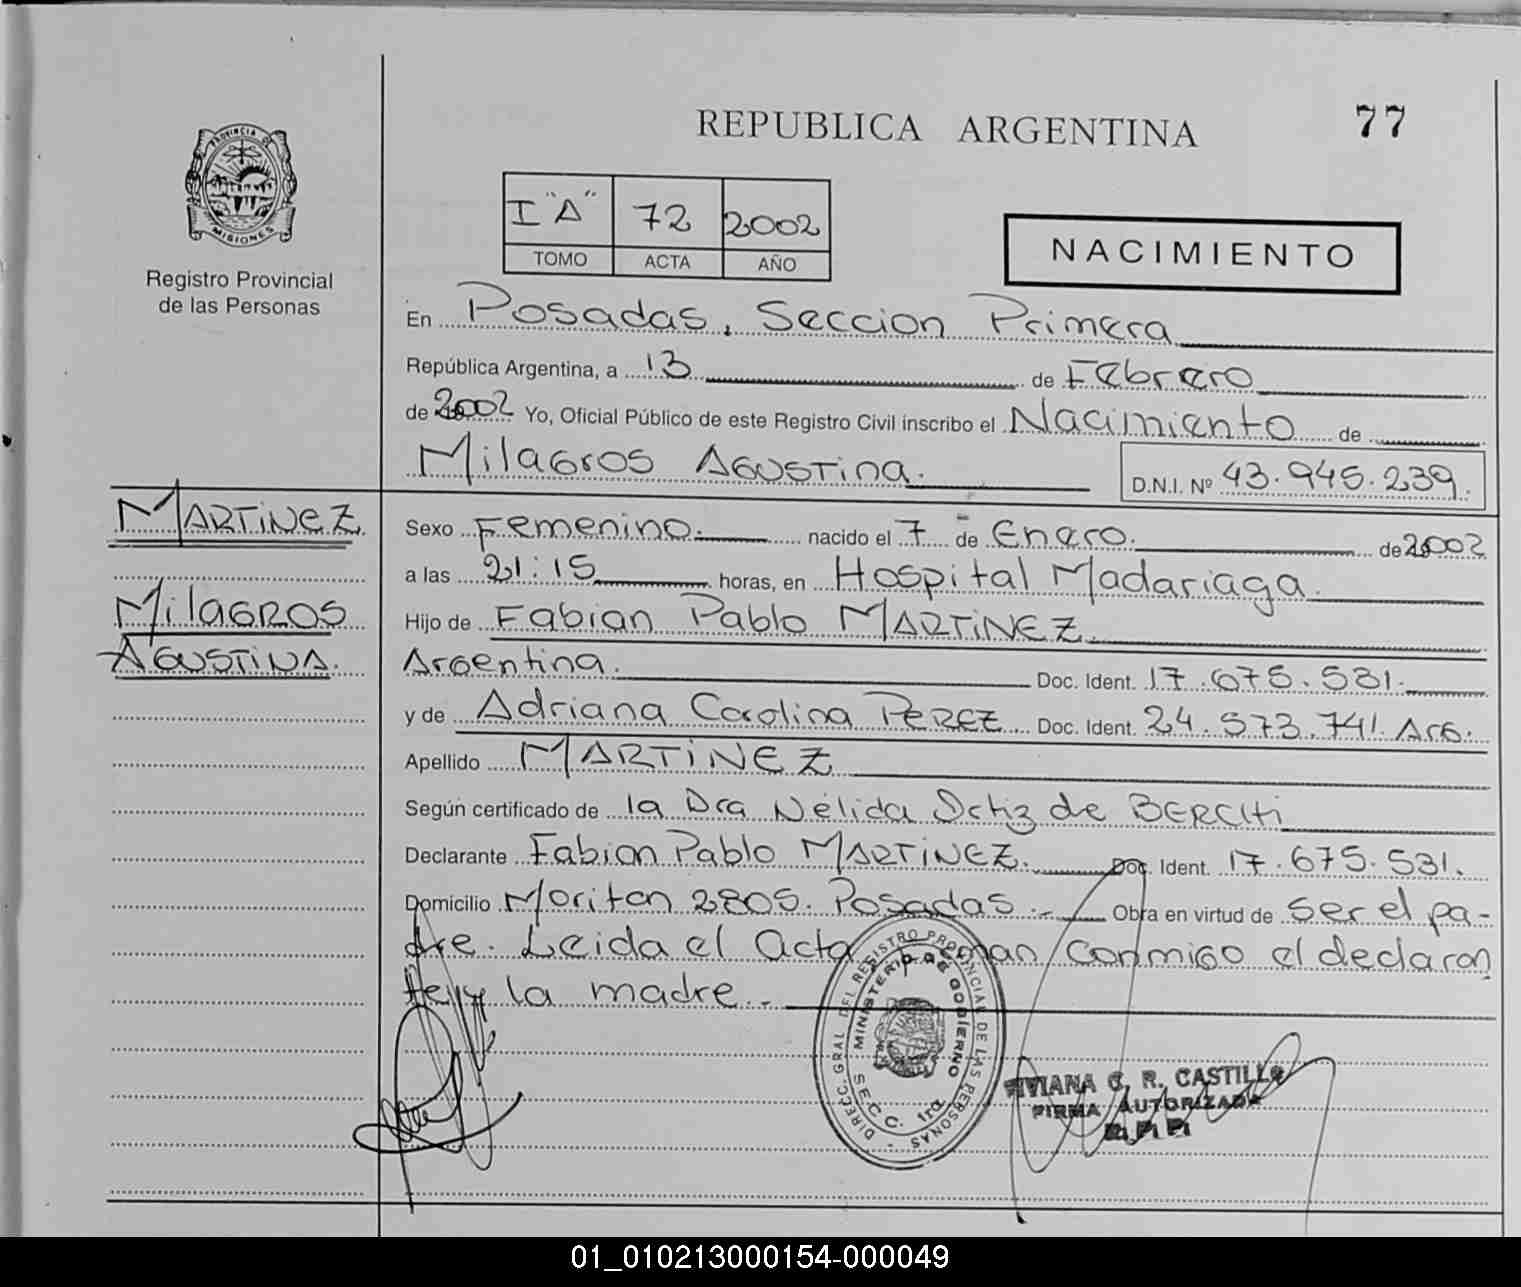 REPUBLICA ARGENTINA
77
PROVINCIA DE
MISIONES
Registro Provincial
de las Personas
I "A" 72 2002
TOMO ACTA AÑO
NACIMIENTO
En Posadas, Seccion Primera
República Argentina, a 13 de Febrero
de 2002 Yo, Oficial Público de este Registro Civil inscribo el Nacimiento de
Milagros Agustina.
D.N.I. Nº 43.945.239.
MARTINEZ
Milagros
Agustina.
Sexo Femenino. nacido el 7 de Enero. de 2002
a las 21:15 horas, en Hospital Madariaga.
Hijo de Fabian Pablo MARTINEZ.
Argentina. Doc. Ident. 17.675.531.
y de Adriana Carolina PEREZ Doc. Ident. 24.573.741. Arg.
Apellido MARTINEZ
Según certificado de la Dra Nélida Ortiz de
Declarante Fabian Pablo MARTINEZ. Doc. Ident. 17.675.531.
Domicilio Moriton 2805. Posadas.- Obra en virtud de ser el pa-
dre. Leida el Acta firman conmigo el declaran
te y la madre.-
DIRECC. GRAL. DEL REGISTRO PROVINCIAL DE LAS PERSONAS
MINISTERIO DE GOBIERNO
SECC. 1ra
VIVIANA C. R. CASTILLO
FIRMA AUTORIZADA
01_010213000154-000049